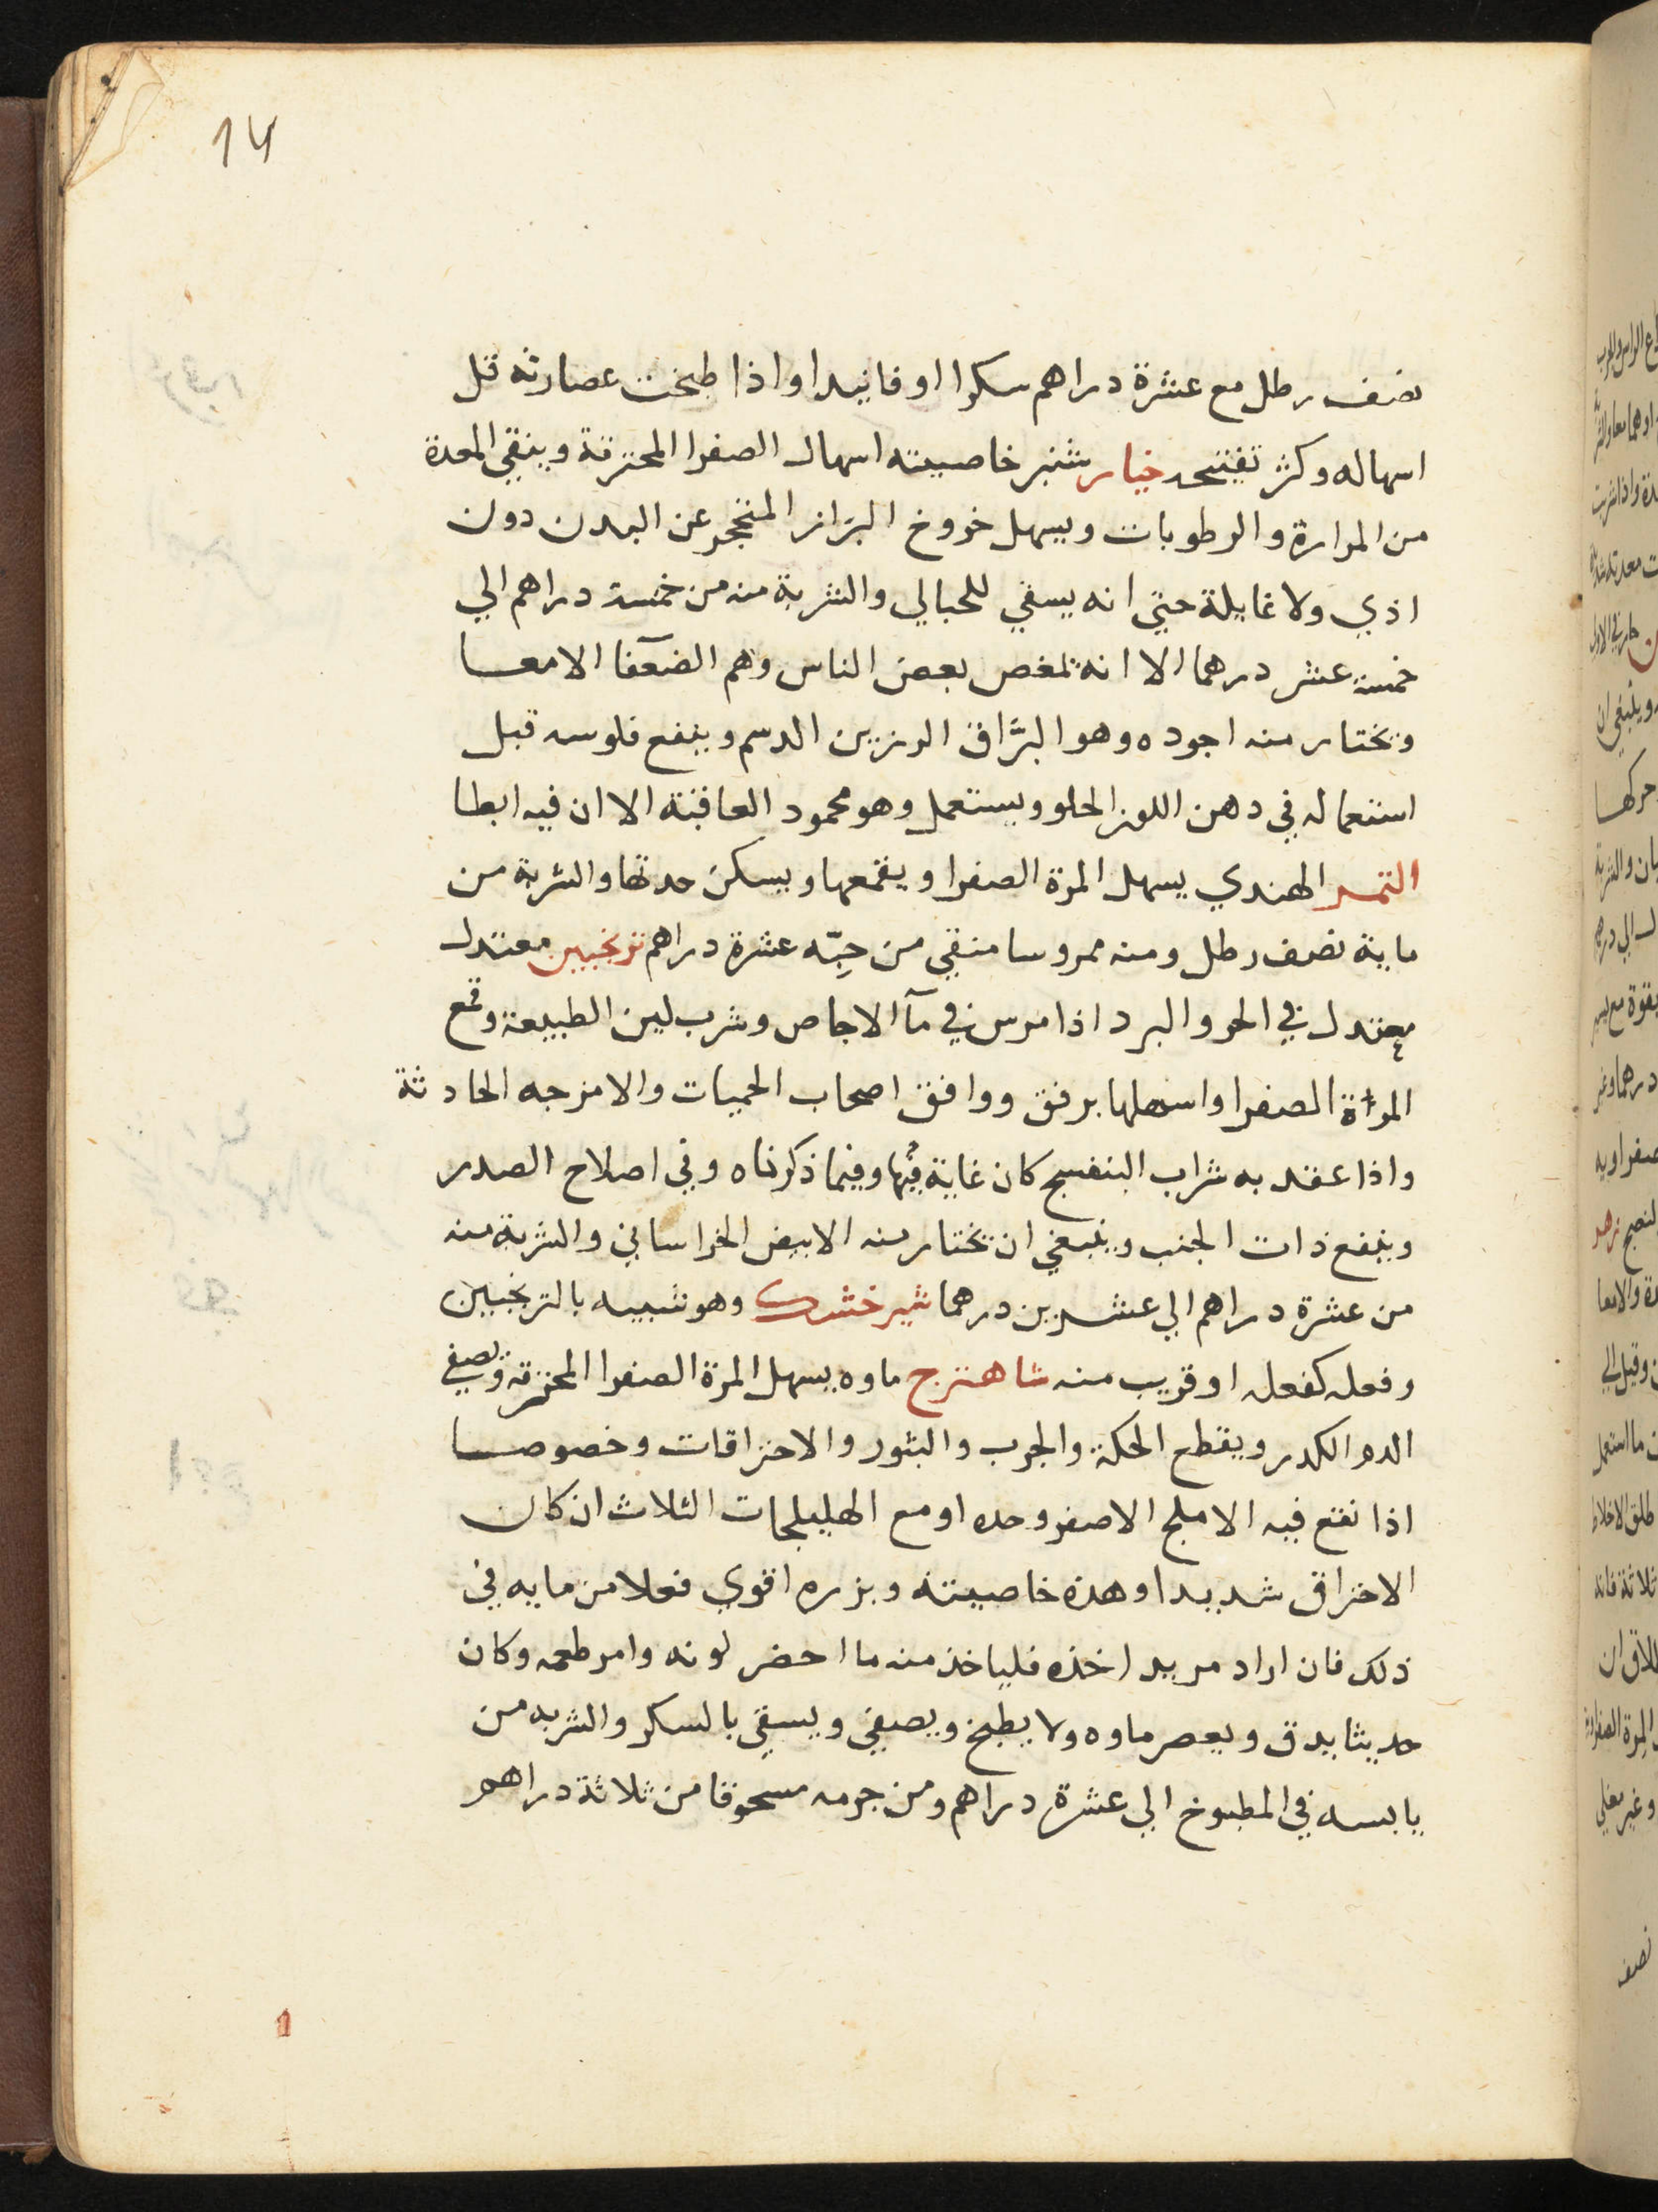 14
نصف رطل مع عشرة دراهم سكرا او فانيدا واذا طبخت عصارته قل
اسهاله وكثر تفتيحه خيار شنبر خاصيته اسهال الصفرا المحترقة وينقي المعدة
من المرارة والرطوبات ويسهل خروج البراز المتحجر عن البدن دون
اذي ولا غايلة حتي انه يسقي للحبالي والشربة منه من خمسة دراهم الي
خمسة عشر درهما الا انه يمغص بعض الناس وهم الضعفا الامعا
ويختار منه اجوده وهو البرَّاق الرزين الدسم وينفع فلوسه قبل
استعماله في دهن اللوز الحلو ويستعمل وهو محمود العاقبة الا ان فيه ابطا
التمر الهندي يسهل المرة الصفرا ويقمعها ويسكن حدتها والشربة من
مايه نصف رطل ومنه ممروسا منقي من حبّه عشرة دراهم ترنجبين معتدل
معتدل في الحر والبرد اذا مرس في مآ الاجاص وشرب لين الطبيعة وقمع
المرة الصفرا واسهلها برفق ووافق اصحاب الحميات والامزجه الحادثة
واذا عقد به شراب البنفسج كان غاية فيها وفيما ذكرناه وفي اصلاح الصدر
وينفع ذات الجنب وينبغي ان يختار منه الابيض الخراساني والشربة منه
من عشرة دراهم الي عشرين درهما شيرخشك وهو شبيه بالترنجبين
وفعله كفعله او قريب منه شاهترج ماوه يسهل المرة الصفرا المحترقة ويصفي
الدم الكدر ويقطع الحكة والجرب والبثور والاحتراقات وخصوصا
اذا نقع فيه الاملج الاصفر وحده او مع الهليلجات الثلاث ان كان
الاحتراق شديدا وهذه خاصيته وبزره اقوي فعلا من مايه في
ذلك فان اراد مريد اخذه فلياخذ منه ما احضر لونه وامر طعمه وكان
حديثا يدق ويعصر ماوه ولا يطبخ ويصفي ويسقي بالسكر والشربه من
يابسه في المطبوخ الي عشرة دراهم ومن جرمه مسحوقا من ثلاثة دراهم